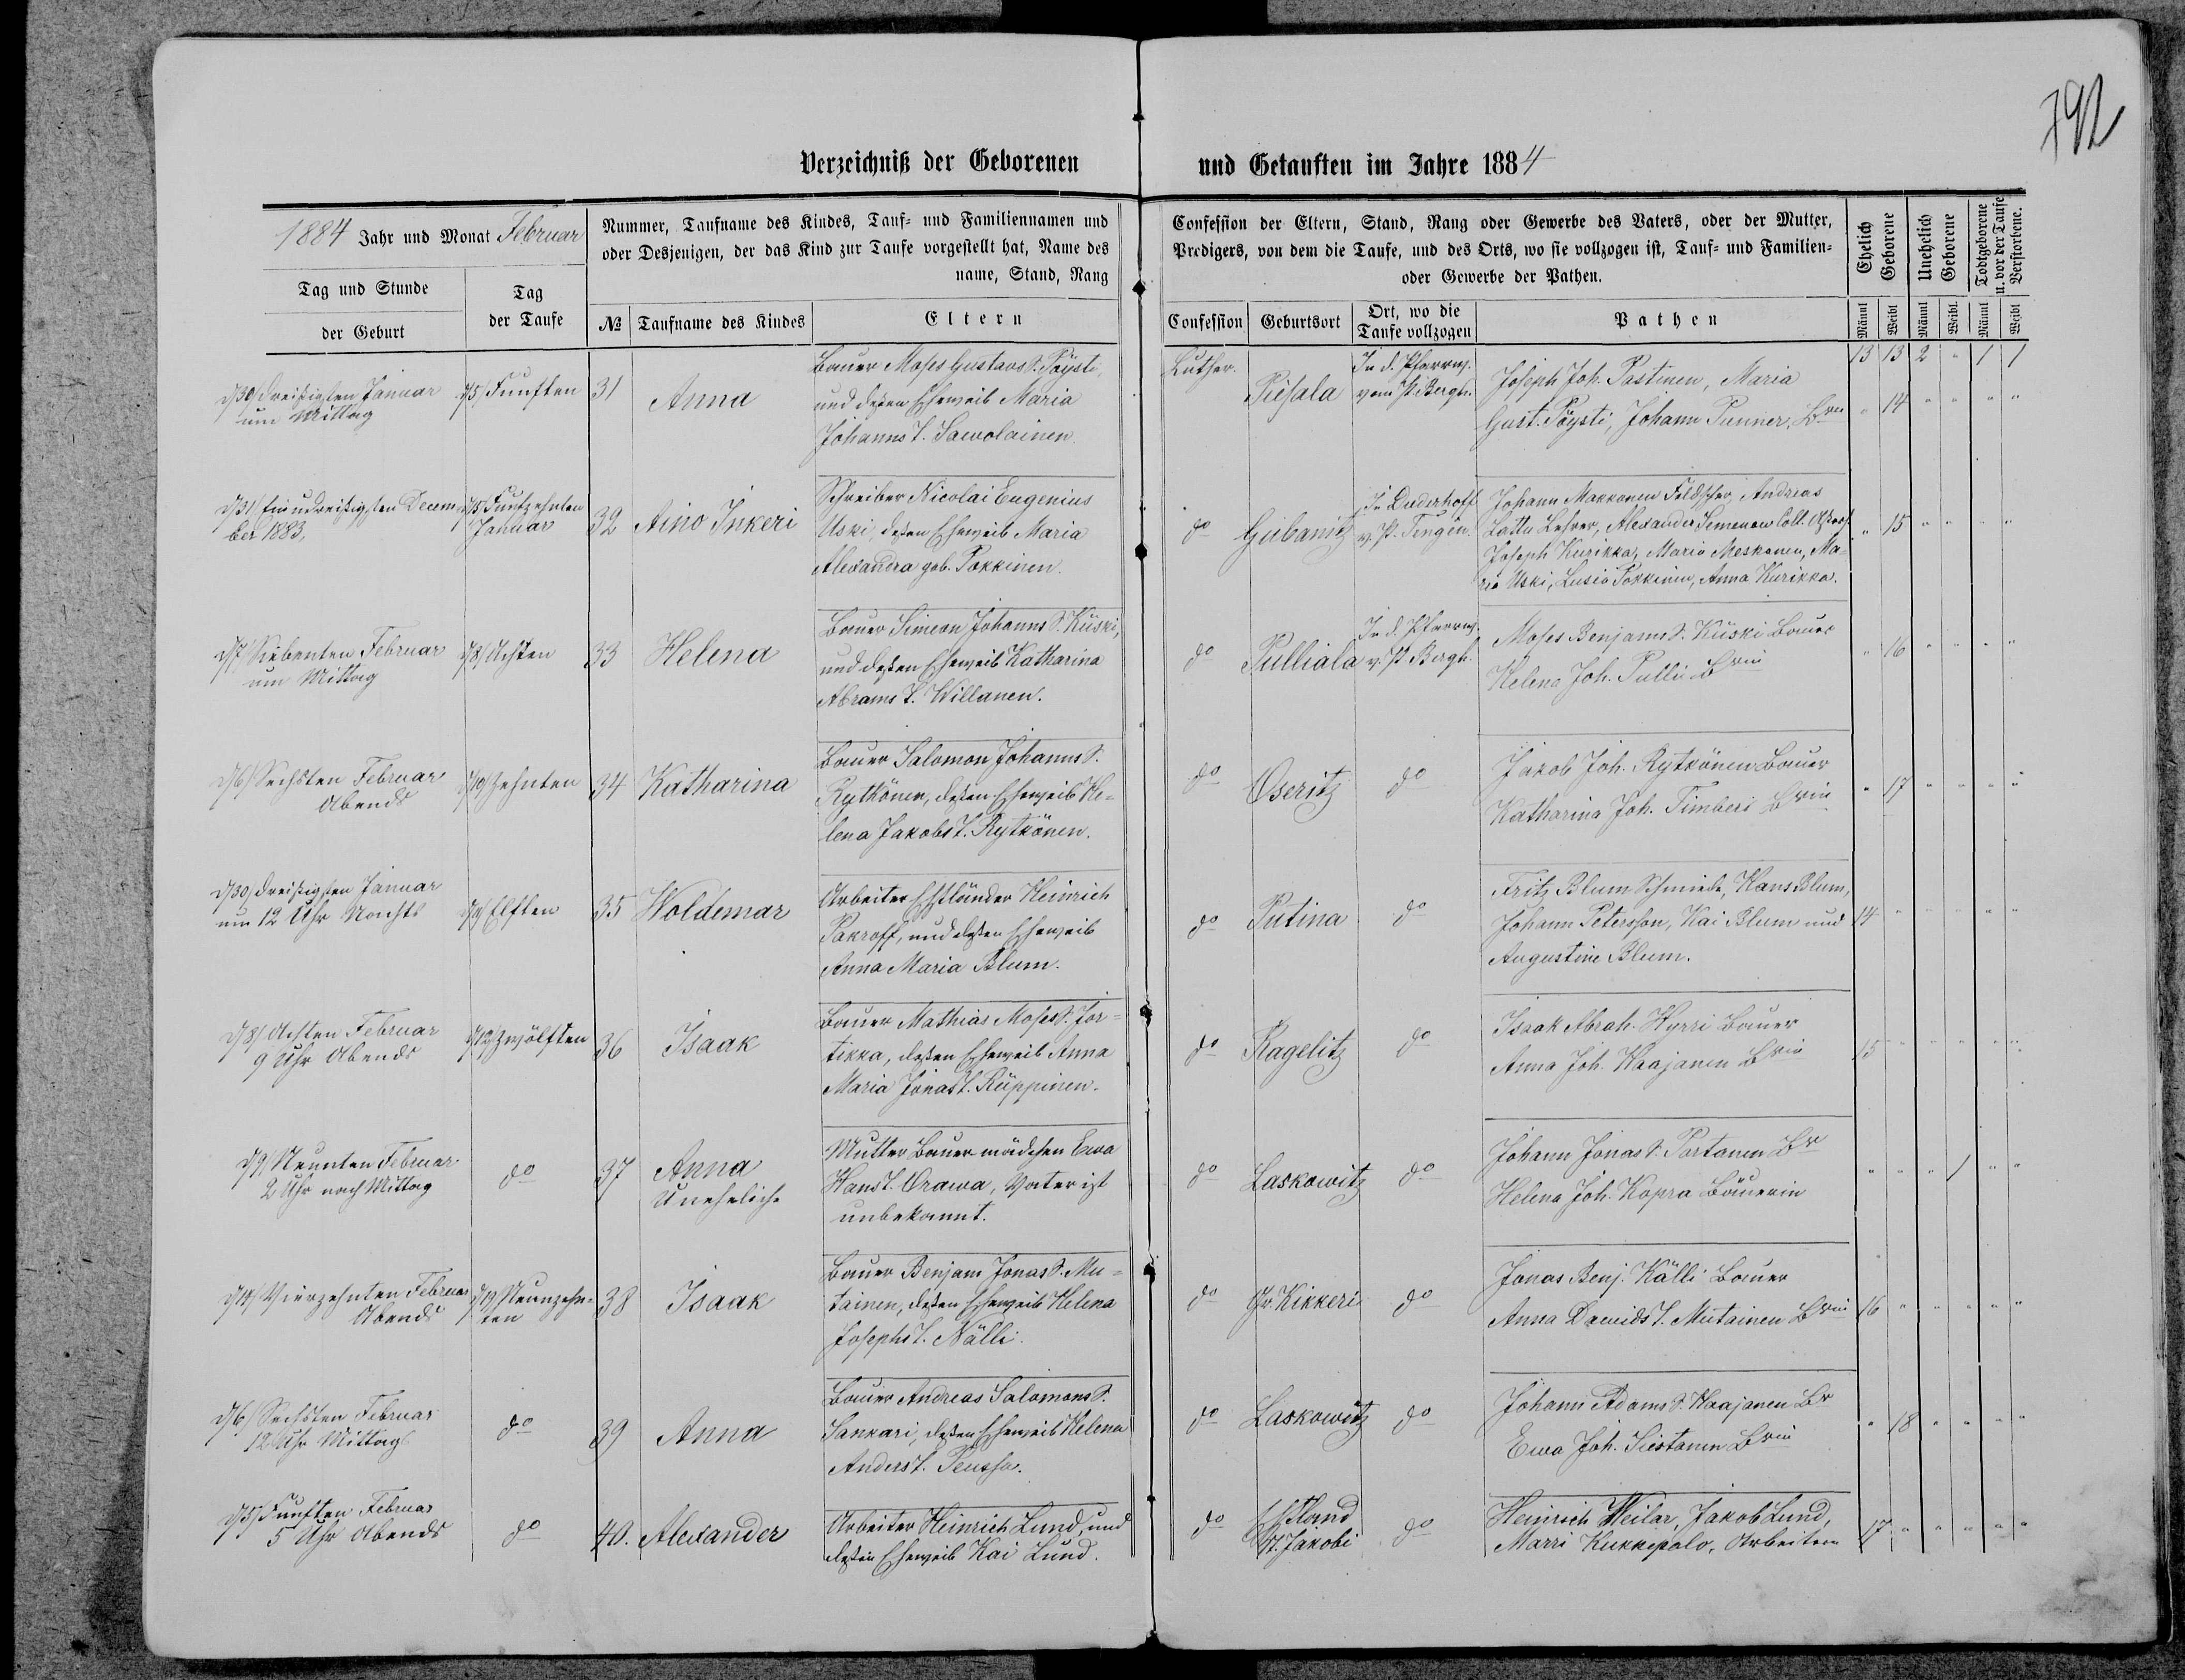 792
Verzeichniß der Geborenen und Getauften im Jahre 1884
1884 Jahr und Monat Februar
Tag und Stunde
der Geburt
Tag
der Taufe
Nummer, Taufname des Kindes, Tauf- und Familiennamen und
oder Desjenigen, der das Kind zur Taufe vorgestellt hat, Name des
name, Stand, Rang
№
Taufname des Kindes
Eltern
Confession der Eltern, Stand, Rang oder Gewerbe des Vaters, oder der Mutter,
Predigers, von dem die Taufe, und des Orts, wo sie vollzogen ist, Tauf- und Familien-
oder Gewerbe der Pathen.
Confession
Geburtsort
Ort, wo die
Taufe vollzogen
Pathen
Ehelich
Geborene
Unehelich
Geborene
Todtgeborene
u. vor der Taufe
Verstorbene.
Männl Weibl Männl Weibl. Männl Weibl
13 13 2 " 1 1
d/30/ dreißigsten Januar
um Mittag
d/5/ Fünften
31
Anna
Bauer Moses Gustavs S. Pöysti,
und deßen Eheweib Maria
Johanns T. Sawolainen.
Luther.
Piisala
In d. Pfarrw.
vom P. Bergh.
Joseph Joh. Pastinen, Maria
Gust. Pöysti, Johann Punner, Brn
" 14 " " " "
d/31/ Einundreißigsten Decem-
ber 1883,
d/15/ Funfzehnten
Januar
32
Aino Inkeri
Schreiber Nicolai Eugenius
Uski, deßen Eheweib Maria
Alexandra geb. Pokkinen.
do
Gubanitz
In Duderhoff
v. P. Tengén.
Johann Makkonen Feldscher, Andreas
Lattu Lehrer, Alexander Semenow Coll. Assess.
Joseph Kurikka, Maria Meskonen, Ma-
ria Uski, Lusia Pokkinen, Anna Kurikka.
" 15 " " " "
d/7/ Siebenten Februar
um Mittag
d/8/ Achten
33
Helena
Bauer Simeon Johanns S. Kiiski,
und deßen Eheweib Katharina
Abrams T. Willanen.
do
Pulliala
In d. Pfarrw.
v. P. Bergh.
Moses Benjams S. Kiiski Bauer
Helena Joh. Pulli Brin
" 16 " " " "
d/6/ Sechsten Februar
Abends
d/10/ Zehnten
34
Katharina
Bauer Salomon Johanns S.
Rytkönen, deßen Eheweib He-
lena Jakobs T. Rytkönen.
do
Oseritz
do
Jakob Joh. Rytkönen Bauer
Katharina Joh. Timberi Brin
" 17 " " " "
d/30/ dreißigsten Januar
um 12 Uhr Nachts
d/11/ Elften
35
Woldemar
Arbeiter Estländer Heinrich
Pakroff, und deßen Eheweib
Anna Maria Blum.
do
Putina
do
Fritz Blum Schmiede, Hans Blum,
Johann Petersson, Kai Blum und
Augustine Blum.
14 " " " " "
d/8/ Achten Februar
9 Uhr Abends
d/12/ Zwölften
36
Isaak
Bauer Mathias Moses S. For-
tikka, deßen Eheweib Anna
Maria Jonas T. Rüppinen.
do
Ragelitz
do
Isaak Abrah. Hyrri Bauer
Anna Joh. Haajanen Brin
15 " " " " "
d/9/ Neunten Februar
2 Uhr nach Mittag
do
37
Anna
Uneheliche
Mutter Bauermädchen Ewa
Hans T. Orawa, Vater ist
unbekannt.
do
Laskowitz
do
Johann Jonas S. Partanen Br
Helena Joh. Kopra Bäuerin
" " " 1 " "
d/14/ Vierzehnten Februar
Abends
d/19/ Neunzehn-
ten
38
Isaak
Bauer Benjam Jonas S. Mu-
tainen, deßen Eheweib Helena
Josephs T. Nälli.
do
Gr. Kikkeri
do
Jonas Benj. Källi Bauer
Anna Dawids T. Mutainen Brin
16 " " " " "
d/6/ Sechsten Februar
12 Uhr Mittags
do
39
Anna
Bauer Andreas Salomons S.
Sankari, deßen Eheweib Helena
Anders T. Peussa.
do
Laskowitz
do
Johann Adams S. Haajanen Br
Ewa Joh. Siestanen Brin
" 18 " " " "
d/5/ Fünften Februar
5 Uhr Abends
do
40.
Alexander
Arbeiter Heinrich Lund, und
deßen Eheweib Kai Lund.
do
Estland
St. Jakobi
do
Heinrich Heilar, Jakob Lund,
Marri Kukkepalo, Arbeiter
17 " " " " "